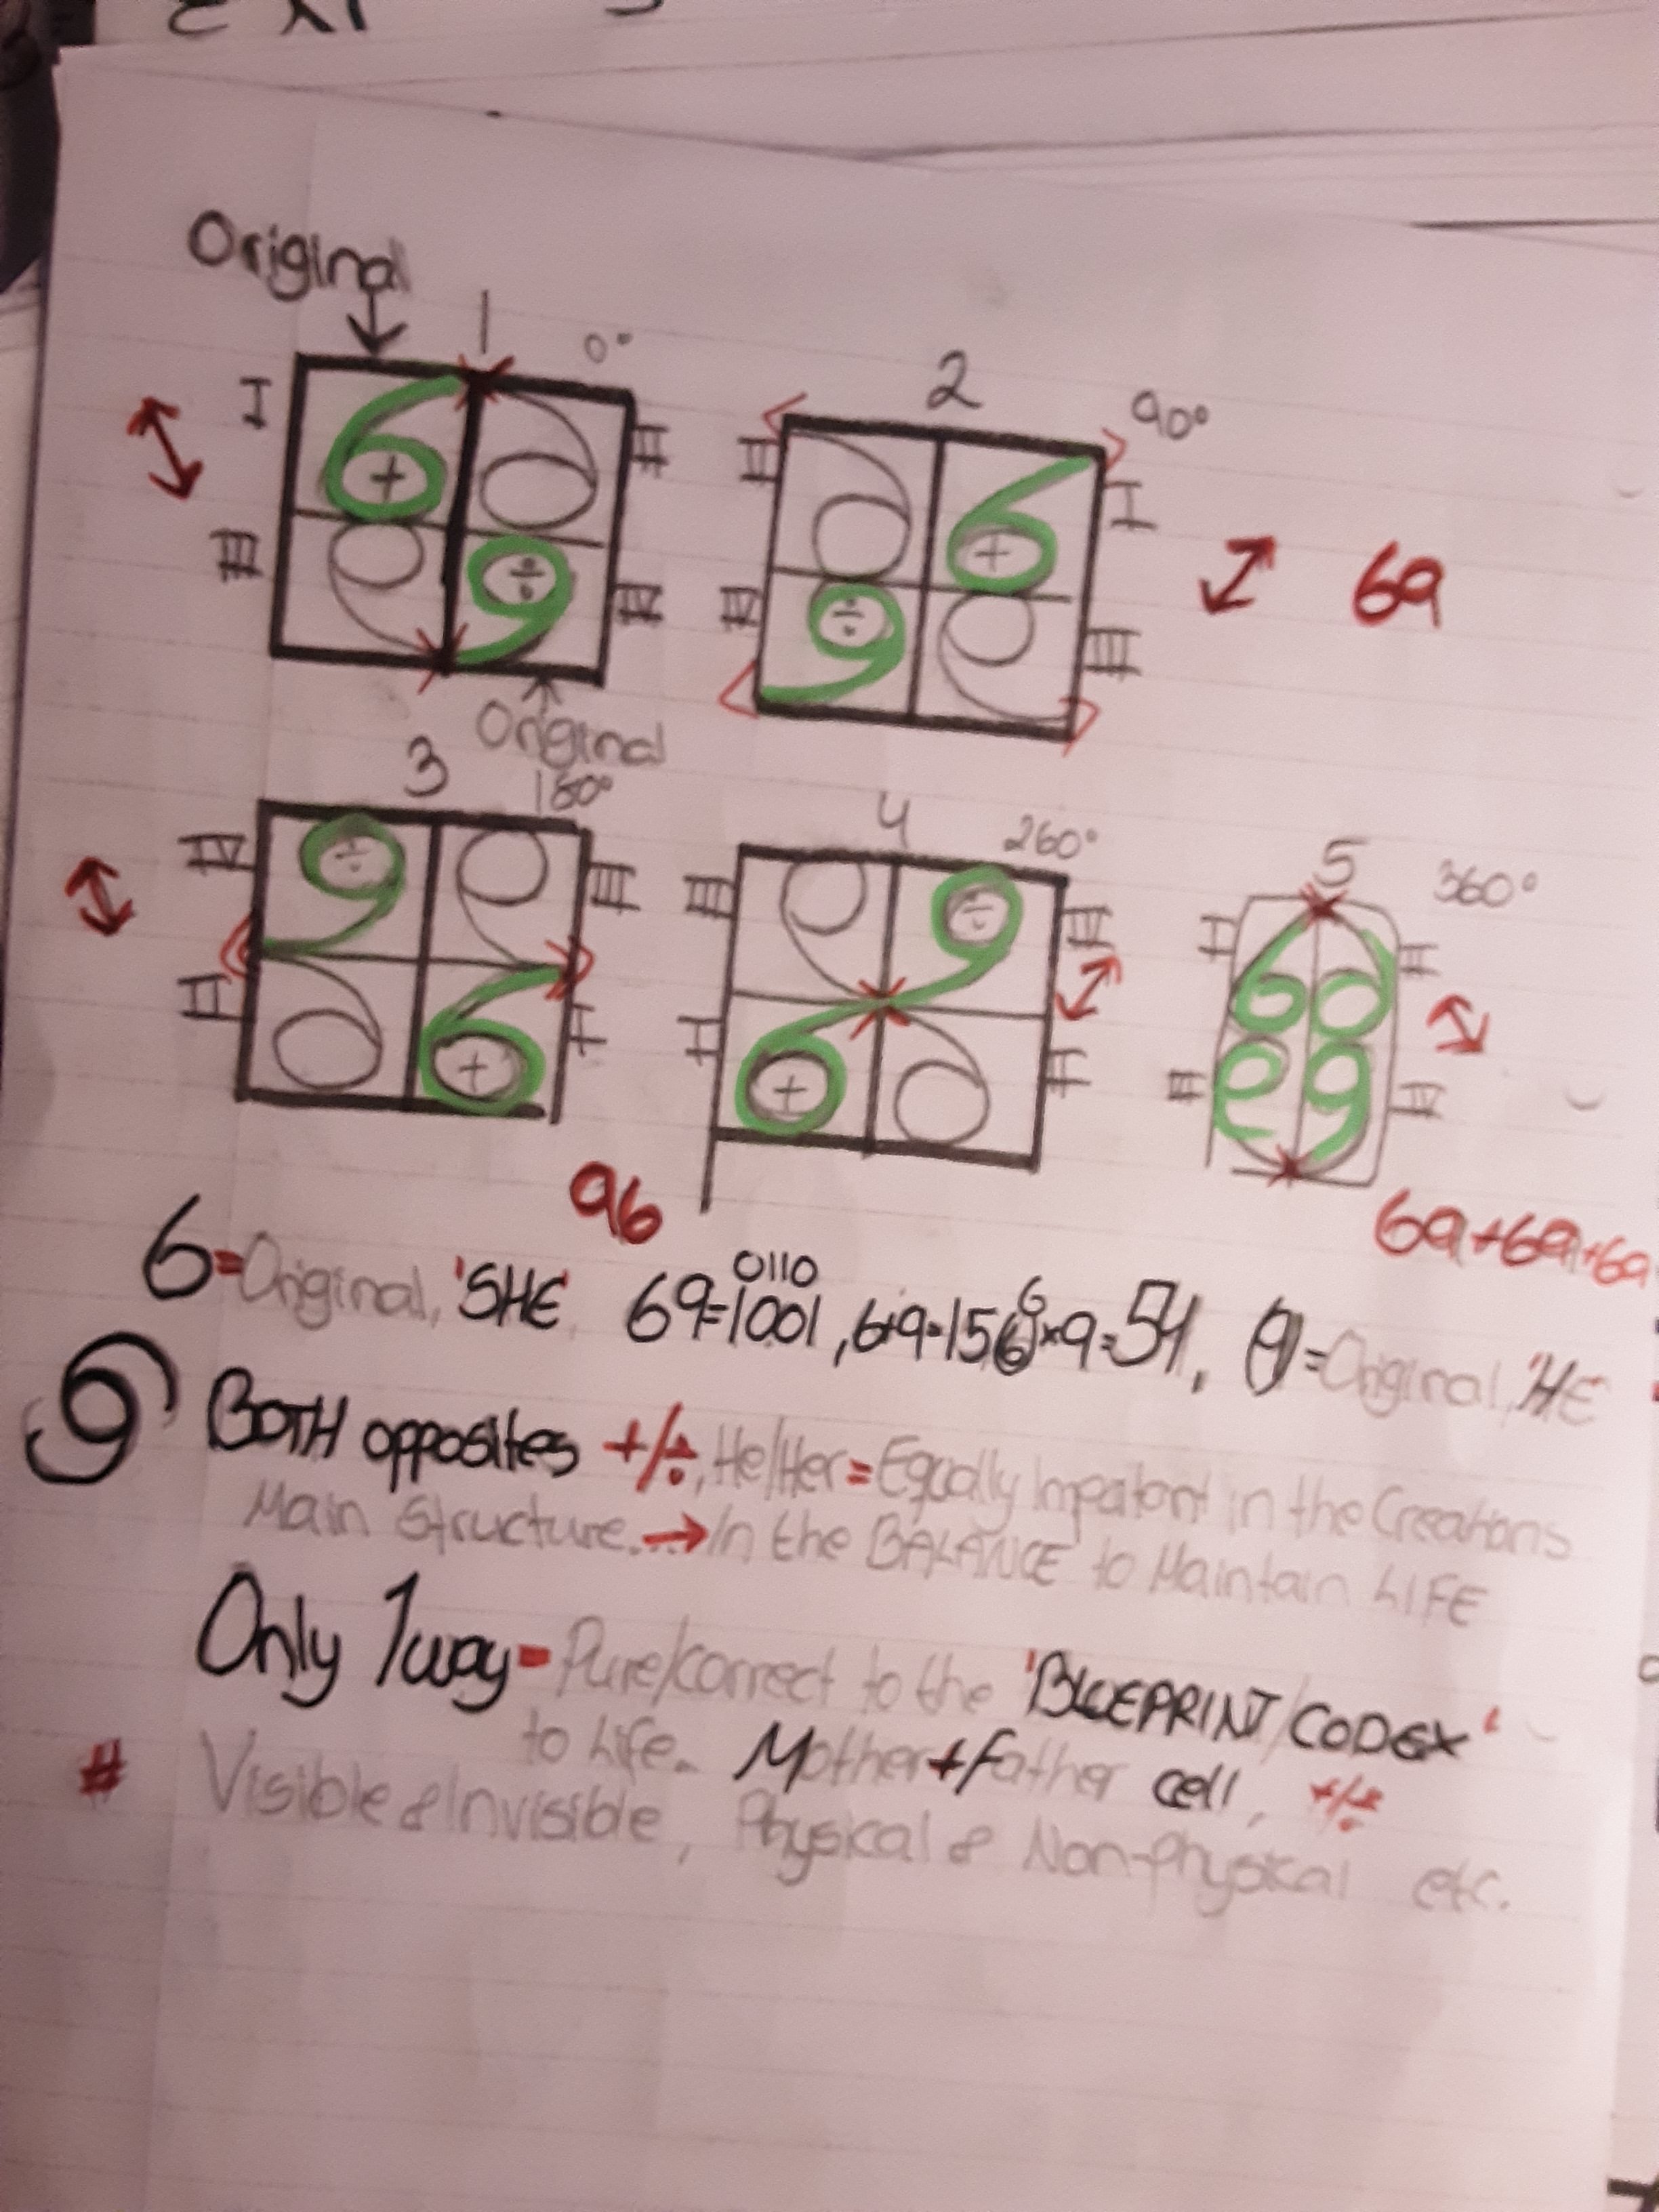 Original
1 0°
I II
6 +
÷ 9
III IV
Original
2 90°
II I
6 +
÷ 9
IV III
69
3 180°
IV III
÷ 9
6 +
II I
4 260°
III IV
÷ 9
6 +
I II
5 360°
I II
6
9
III IV
96
69+69+69
6=Original, 'SHE' 69=1001, 6+9=15 6x9=54, 9=Original, 'HE
0110
69 BOTH opposites +/÷, He/Her=Equally Impatont in the Creations
Main Structure...→In the BALANCE to Maintain LIFE
Only 1way=Pure/correct to the 'BLEPRINT/CODEX'
to Life. Mother+father cell, +/÷
# Visible & Invisible, Physical & Non-Physical etc.